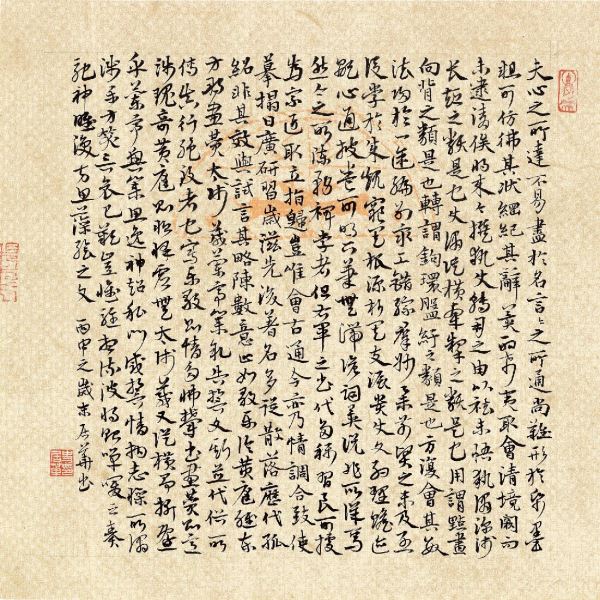 夫心之所達不易盡於名言言之所通尚難形於紙墨
粗可仿彿其狀綱紀其辭冀酌希夷取會清境闕而
未逮請俟將來今撰執使轉用之由以祛未悟執謂深淺
長短之類是也使謂縱橫牽掣之類是也用謂點畫
向背之類是也轉謂鉤環盤紆之類是也方復會其數
法歸於一途編列眾工錯綜群妙舉前賢之未及啟
後學於成規窺其根源析其支派貴使文約理贍迹
顯心通披卷可明下筆無滯詭詞異說非所詳焉
然今之所陳務裨學者但右軍之書代多稱習良可據
為宗匠取立指歸豈唯會古通今亦乃情調合致使
摹搨日廣研習歲滋先後著名多從散落歷代孤
紹非其效與試言其略陳數意止如樂毅論黃庭經東
方朔畫贊太師箴蘭亭集序告誓文斯並代俗所
傳真行絕致者也寫樂毅則情多怫鬱書畫贊則意
涉瑰奇黃庭則怡懌虛無太師箴又縱橫爭折暨
乎蘭亭興集思逸神超私門誡誓情拘志慘所謂
涉樂方笑言哀已歎豈惟駐想流波將貽嘽噯之奏
馳神睢渙方思藻繪之文 丙申之歲末